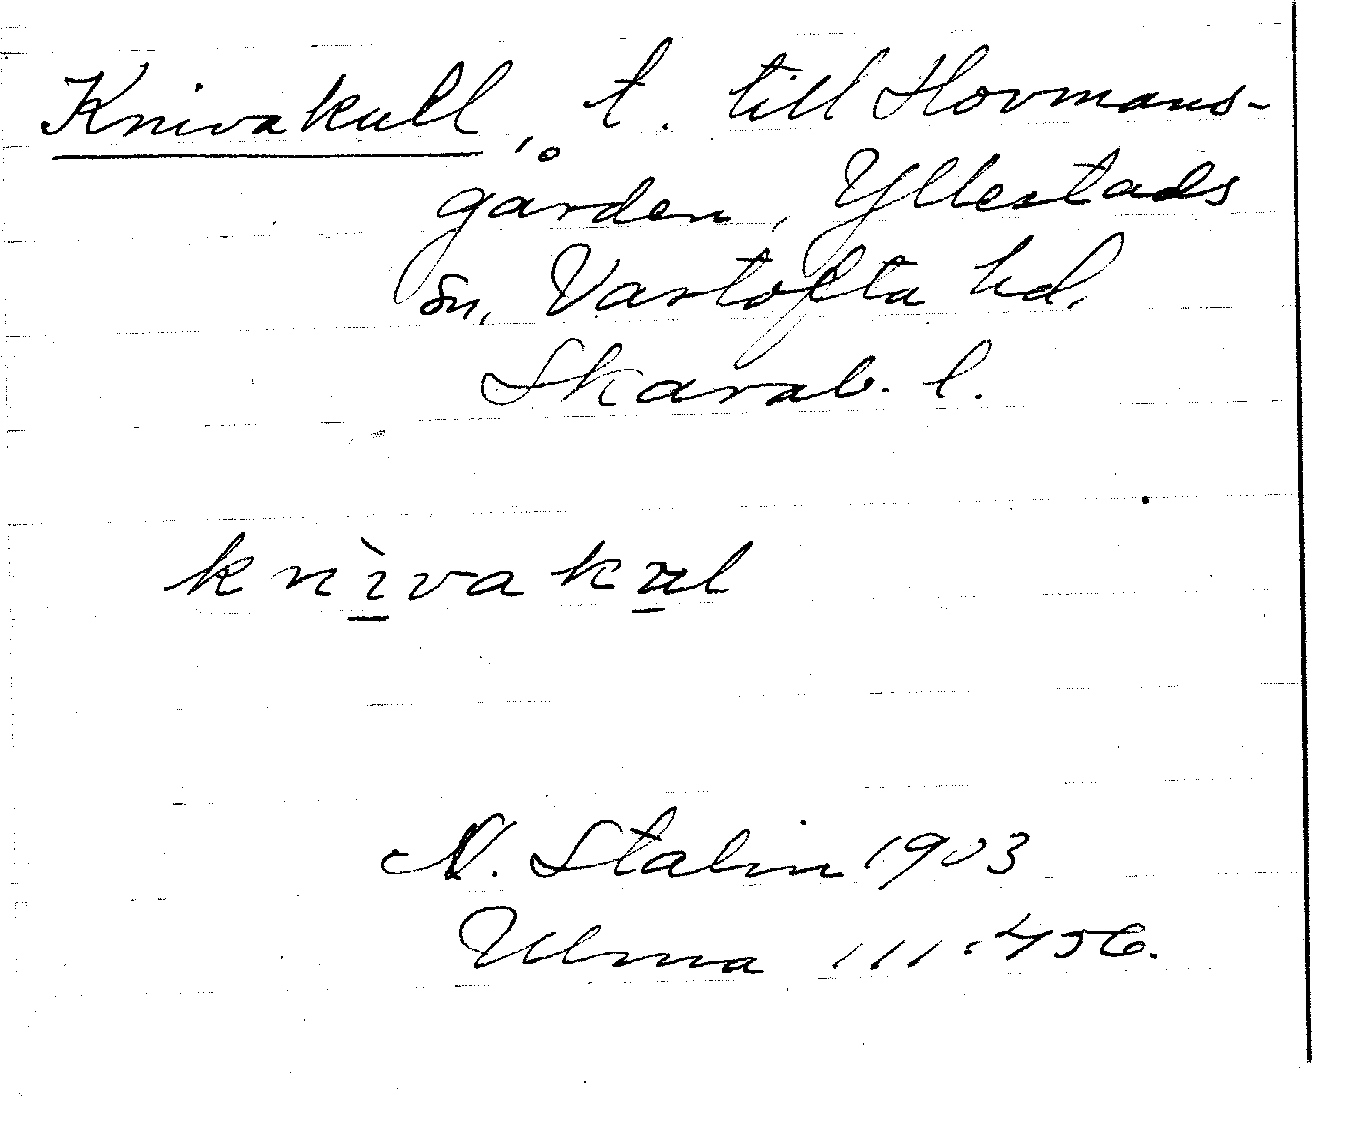 Knivakull, t. till Hovmans-
gården, Yllestads
sn, Vartofta hd,
Skarab. l.
knìvakul
N. Stalin 1903
Ulma 111:456.